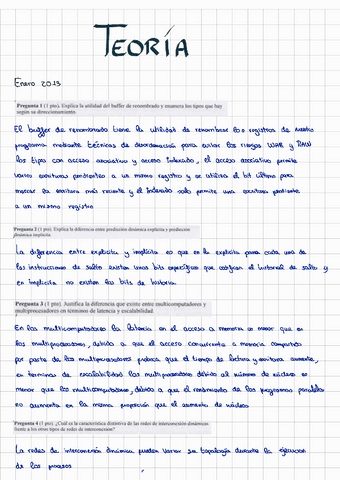 TEORÍA
Enero 2013
Pregunta 1 (1 pto). Explica la utilidad del buffer de renombrado y enumera los tipos que hay
según su direccionamiento.
El buffer de renombrado tiene la utilidad de renombrar los registros de nuestro
programa mediante técnicas de desordenación para evitar los riesgos WAR y RAW
los tipos con acceso asociativo y acceso indexado, el acceso asociativo permite
varias escrituras pendientes a un mismo registro y se utiliza el bit último para
marcar la escritura más reciente y el indexado solo permite una escritura pendiente
a un mismo registro
Pregunta 2 (1 pto). Explica la diferencia entre predicción dinámica explícita y predicción
dinámica implícita
La diferencia entre explícita y implícita es que en la explícita para cada una de
las instrucciones de salto existen unos bits específicos que codifican el historial de salto y
en implícita no existen los bits de historia.
Pregunta 3 (1 pto). Justifica la diferencia que existe entre multicomputadores y
multiprocesadores en términos de latencia y escalabilidad.
En los multicomputadores la latencia en el acceso a memoria es menor que en
los multiprocesadores, debido a que el acceso concurrente a memoria compartida
por parte de los multiprocesadores produce que el tiempo de lectura y escritura aumente,
en términos de escalabilidad los multiprocesadores debido al número de núcleos es
menor que los multicomputadores, debido a que el rendimiento de los programas paralelos
no aumenta en la misma proporción que el aumento de núcleos
Pregunta 4 (1 pto). ¿Cuál es la característica distintiva de las redes de interconexión dinámicas
frente a los otros tipos de redes de interconexión?
La redes de interconexión dinámica pueden variar su topología durante la ejecución
de los procesos